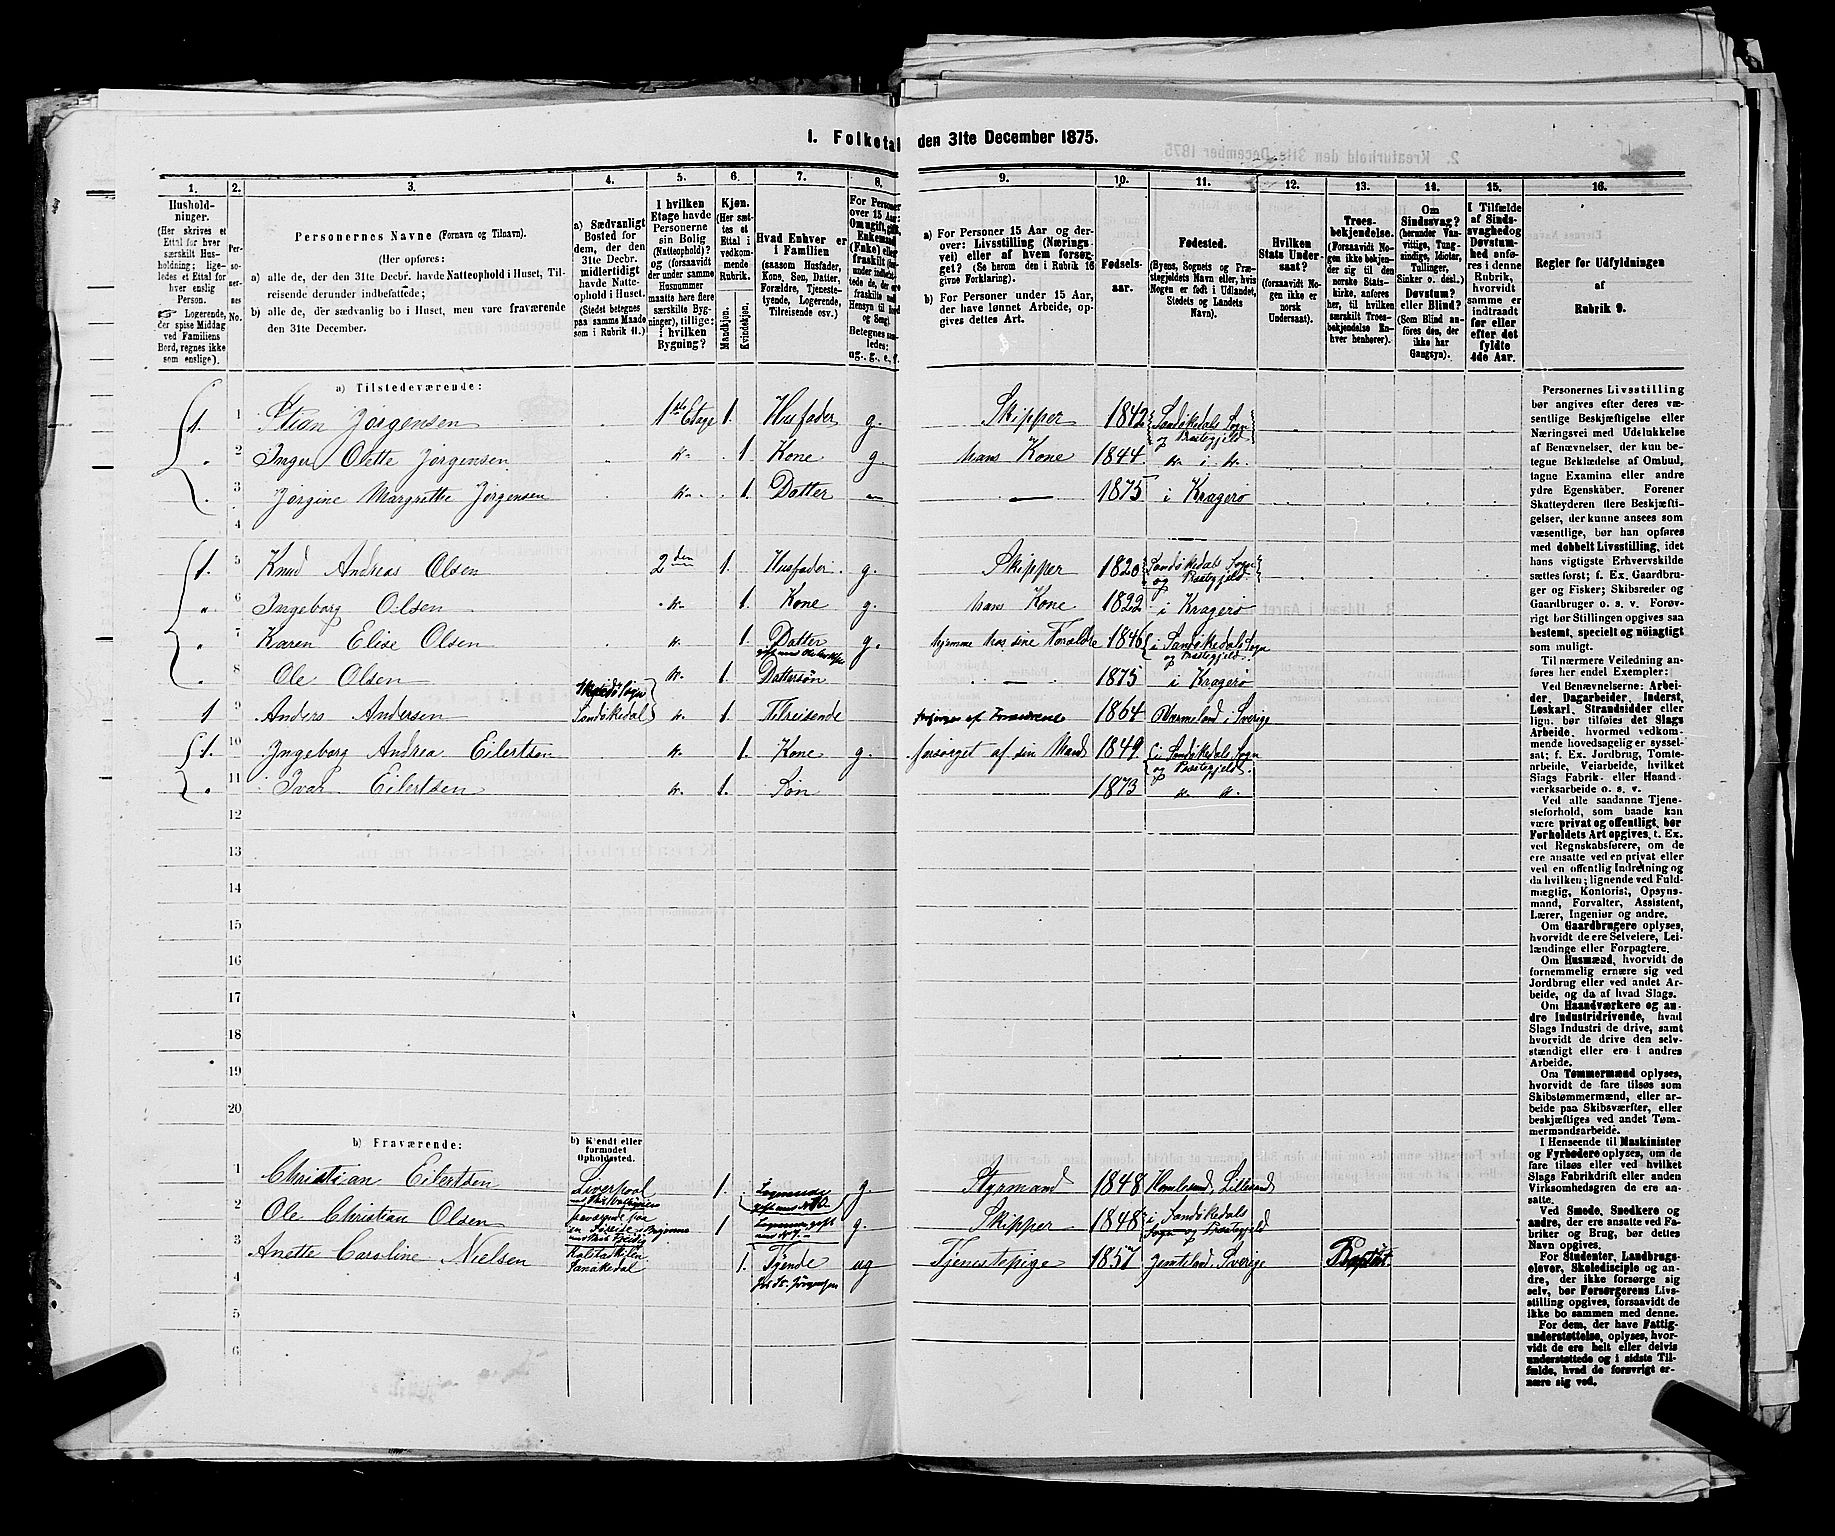 1. Folketal den 31te December 1875.
1. 2. 3. 4. 5. 6. 7. 8. 9. 10. 11. 12. 13. 14. 15. 16.
Husholdninger.
(Her skrives et Ettal for hver særskilt Husholdning; ligeledes et Ettal for hver enslig Person.
Logerende, der spise Middag ved Familiens Bord, regnes ikke som enslige).
Personernes No.
Personernes Navne (Fornavn og Tilnavn).
(Her opføres:
a) alle de, der den 31te Decbr. havde Natteophold i Huset, Tilreisende derunder indbefattede;
b) alle de, der sædvanlig bo i Huset, men vare fraværende den 31te December.
a) Sædvanligt Bosted for dem, der den 31te Decbr. midlertidigt havde Natteophold i Huset.
(Stedet betegnes paa samme Maade som i Rubrik 11.)
I hvilken Etage havde Personerne sin Bolig (Natteophold)? og (forsaavidt der under samme Husnummer maatte høre flere særskilte Bygninger), tillige: i hvilken Bygning?
Kjøn.
(Her sættes et Ettal i vedkommende Rubrik.
Mandkjøn. Kvindekjøn.
Hvad Enhver er i Familien
(saasom Husfader, Kone, Søn, Datter, Forældre, Tjenestetyende, Logerende, Tilreisende osv.)
For Personer over 15 Aar: Om ugift, gift, Enkemand (Enke) eller fraskilt
ug., g., e., f.
a) For Personer 15 Aar og derover: Livsstilling (Næringsvei) eller af hvem forsørget? (Se herom den i Rubrik 16 givne Forklaring).
b) For Personer under 15 Aar, der have lønnet Arbeide, opgives dettes Art.
Fødselsaar.
Fødested.
(Byens, Sognets og Præstegjeldets Navn, eller, hvis Nogen er født i Udlandet, Stedets og Landets Navn).
Hvilken Stats Undersaat?
(forsaavidt Nogen ikke er norsk Undersaat).
Troesbekjendelse.
(Forsaavidt Nogen ikke bekjender sig til den norske Statskirke, anføres her, til hvilken særskilt Troesbekjendelse Enhver henhører).
Om Sindssvag? (herunder Vanvittige, Tungsindige, Idioter, Tullinger, Sinker o. desl.)
Døvstum? eller Blind? (Som Blind anføres den, der ikke har Gangsyn).
I Tilfælde af Sindssvaghed og Døvstumhed anføres i denne Rubrik, hvorvidt samme er indtraadt før eller efter det fyldte 4de Aar.
Regler for Udfyldningen
af
Rubrik 9.
a) Tilstedeværende:
1. 1 Stian Jørgensen 1ste Etage 1. Husfader g. Skipper 1842 Sandøkedals Sogn og Præstegjeld
" 2 Inger Olette Jørgensen " 1. Kone g. hans Kone 1844 " i "
" 3 Jørgine Margrethe Jørgensen " 1. Datter — 1875 i Kragerø
4
1. 5 Knud Andreas Olsen 2den 1. Husfader g. Skipper 1820 Sandøkedals Sogn og Præstegjeld
" 6 Ingeborg Olsen " 1. Kone g. hans Kone 1822 i Kragerø
" 7 Karen Elise Olsen " 1. Datter g. hjemme hos sine Forældre 1846 i Sandøkedals Sogn og Præstegjeld
8 Ole Olsen " 1. Dattersøn 1875 i Kragerø
1 9 Anders Andersen Sogn Sandøkedal " 1. Tilreisende 1864 Wærmeland i Sverige
1. 10 Ingeborg Andrea Eilertsen " 1. Kone g. forsørget af sin Mand 1849 i Sandøkedals Sogn og Præstegjeld
" 11 Ivar Eilertsen " 1. Søn 1873 " "
12
13
14
15
16
17
18
19
20
b) Fraværende:
b) Kjendt eller formodet Opholdssted.
1 Christian Eilertsen Liverpool 1. Logerende g. Styrmand 1848 Homlesund, Lillesand
2 Ole Christian Olsen 1 Logerende gift g. Skipper 1848 i Sandøkedals Sogn og Præstegjeld
3 Anette Caroline Nielsen Sanøkedal 1. Tjende hos St. Jørgensen ug Tjenestepige 1857 Jemteland, Sverige Baptist
4
5
6
Personernes Livsstilling
bør angives efter deres væsentlige
Beskjæftigelse eller
Næringsvei med Udelukkelse
af Benævnelser, der kun betegne
Beklædelse af Ombud,
tagne Examina eller andre
ydre Egenskaber. Forener
Skatteyderen flere Beskjæftigelser,
der kunne ansees som
væsentlige, bør han opføres
med dobbelt Livsstilling, idet
hans vigtigste Erhvervskilde
sættes først; f. Ex. Gaardbruger
og Fisker; Skibsreder og
Gaardbruger o. s. v. Forøvrigt
bør Stillingen opgives saa
bestemt, specielt og nøiagtigt
som muligt.
Til nærmere Veiledning anføres
her endel Exempler:
Ved Benævnelserne: Arbeider,
Dagarbeider, Inderst,
Løskarl, Strandsidder eller
lign. bør tilføies det Slags
Arbeide, hvormed vedkommende
hovedsagelig er sysselsat;
f. Ex. Jordbrug, Tomtearbeide,
Veiarbeide, hvilket
Slags Fabrik- eller Haandværksarbeide
o. s. v.
Ved alle saadanne Tjenesteforhold,
som baade kan
være privat og offentligt, bør
Forholdets Art opgives, t. Ex.
ved Regnskabsførere, om de
ere ansatte ved en privat eller
ved en offentlig Indretning og
da hvilken; lignende ved Fuldmægtig,
Kontorist, Opsynsmand,
Forvalter, Assistent,
Lærer, Ingeniør og andre.
Om Gaardbrugere oplyses,
hvorvidt de ere Selveiere, Leilændinge
eller Forpagtere.
Om Husmænd, hvorvidt de
fornemmelig ernære sig ved
Jordbrug eller ved andet Arbeide,
og da af hvad Slags.
Om Haandværkere og andre
Industridrivende, hvad
Slags Industri de drive, samt
hvorvidt de drive den selvstændigt
eller ere i andres
Arbeide.
Om Tømmermænd oplyses,
hvorvidt de fare tilsøs som
Skibstømmermænd, eller arbeide
paa Skibsværfter, eller
beskjæftiges ved andet Tømmermandsarbeide.
I Henseende til Maskinister
og Fyrbødere oplyses, om de
fare tilsøs eller ved hvilket
Slags Fabrikdrift eller anden
Virksomhedsgren de ere ansatte.
Ved Smede, Snedkere og
andre, der ere ansatte ved Fabriker
og Brug, bør dettes
Navn opgives.
For Studenter, Landbrugselever,
Skoledisciple og andre,
der ikke forsørge sig
selv, bør Forsørgerens Livsstilling
opgives, forsaavidt de
ikke bo sammen med denne.
For dem, der have Fattigunderstøttelse,
oplyses, hvorvidt
de ere helt eller delvis
understøttede og i sidste Tilfælde,
hvad de forøvrigt ernære
sig ved.